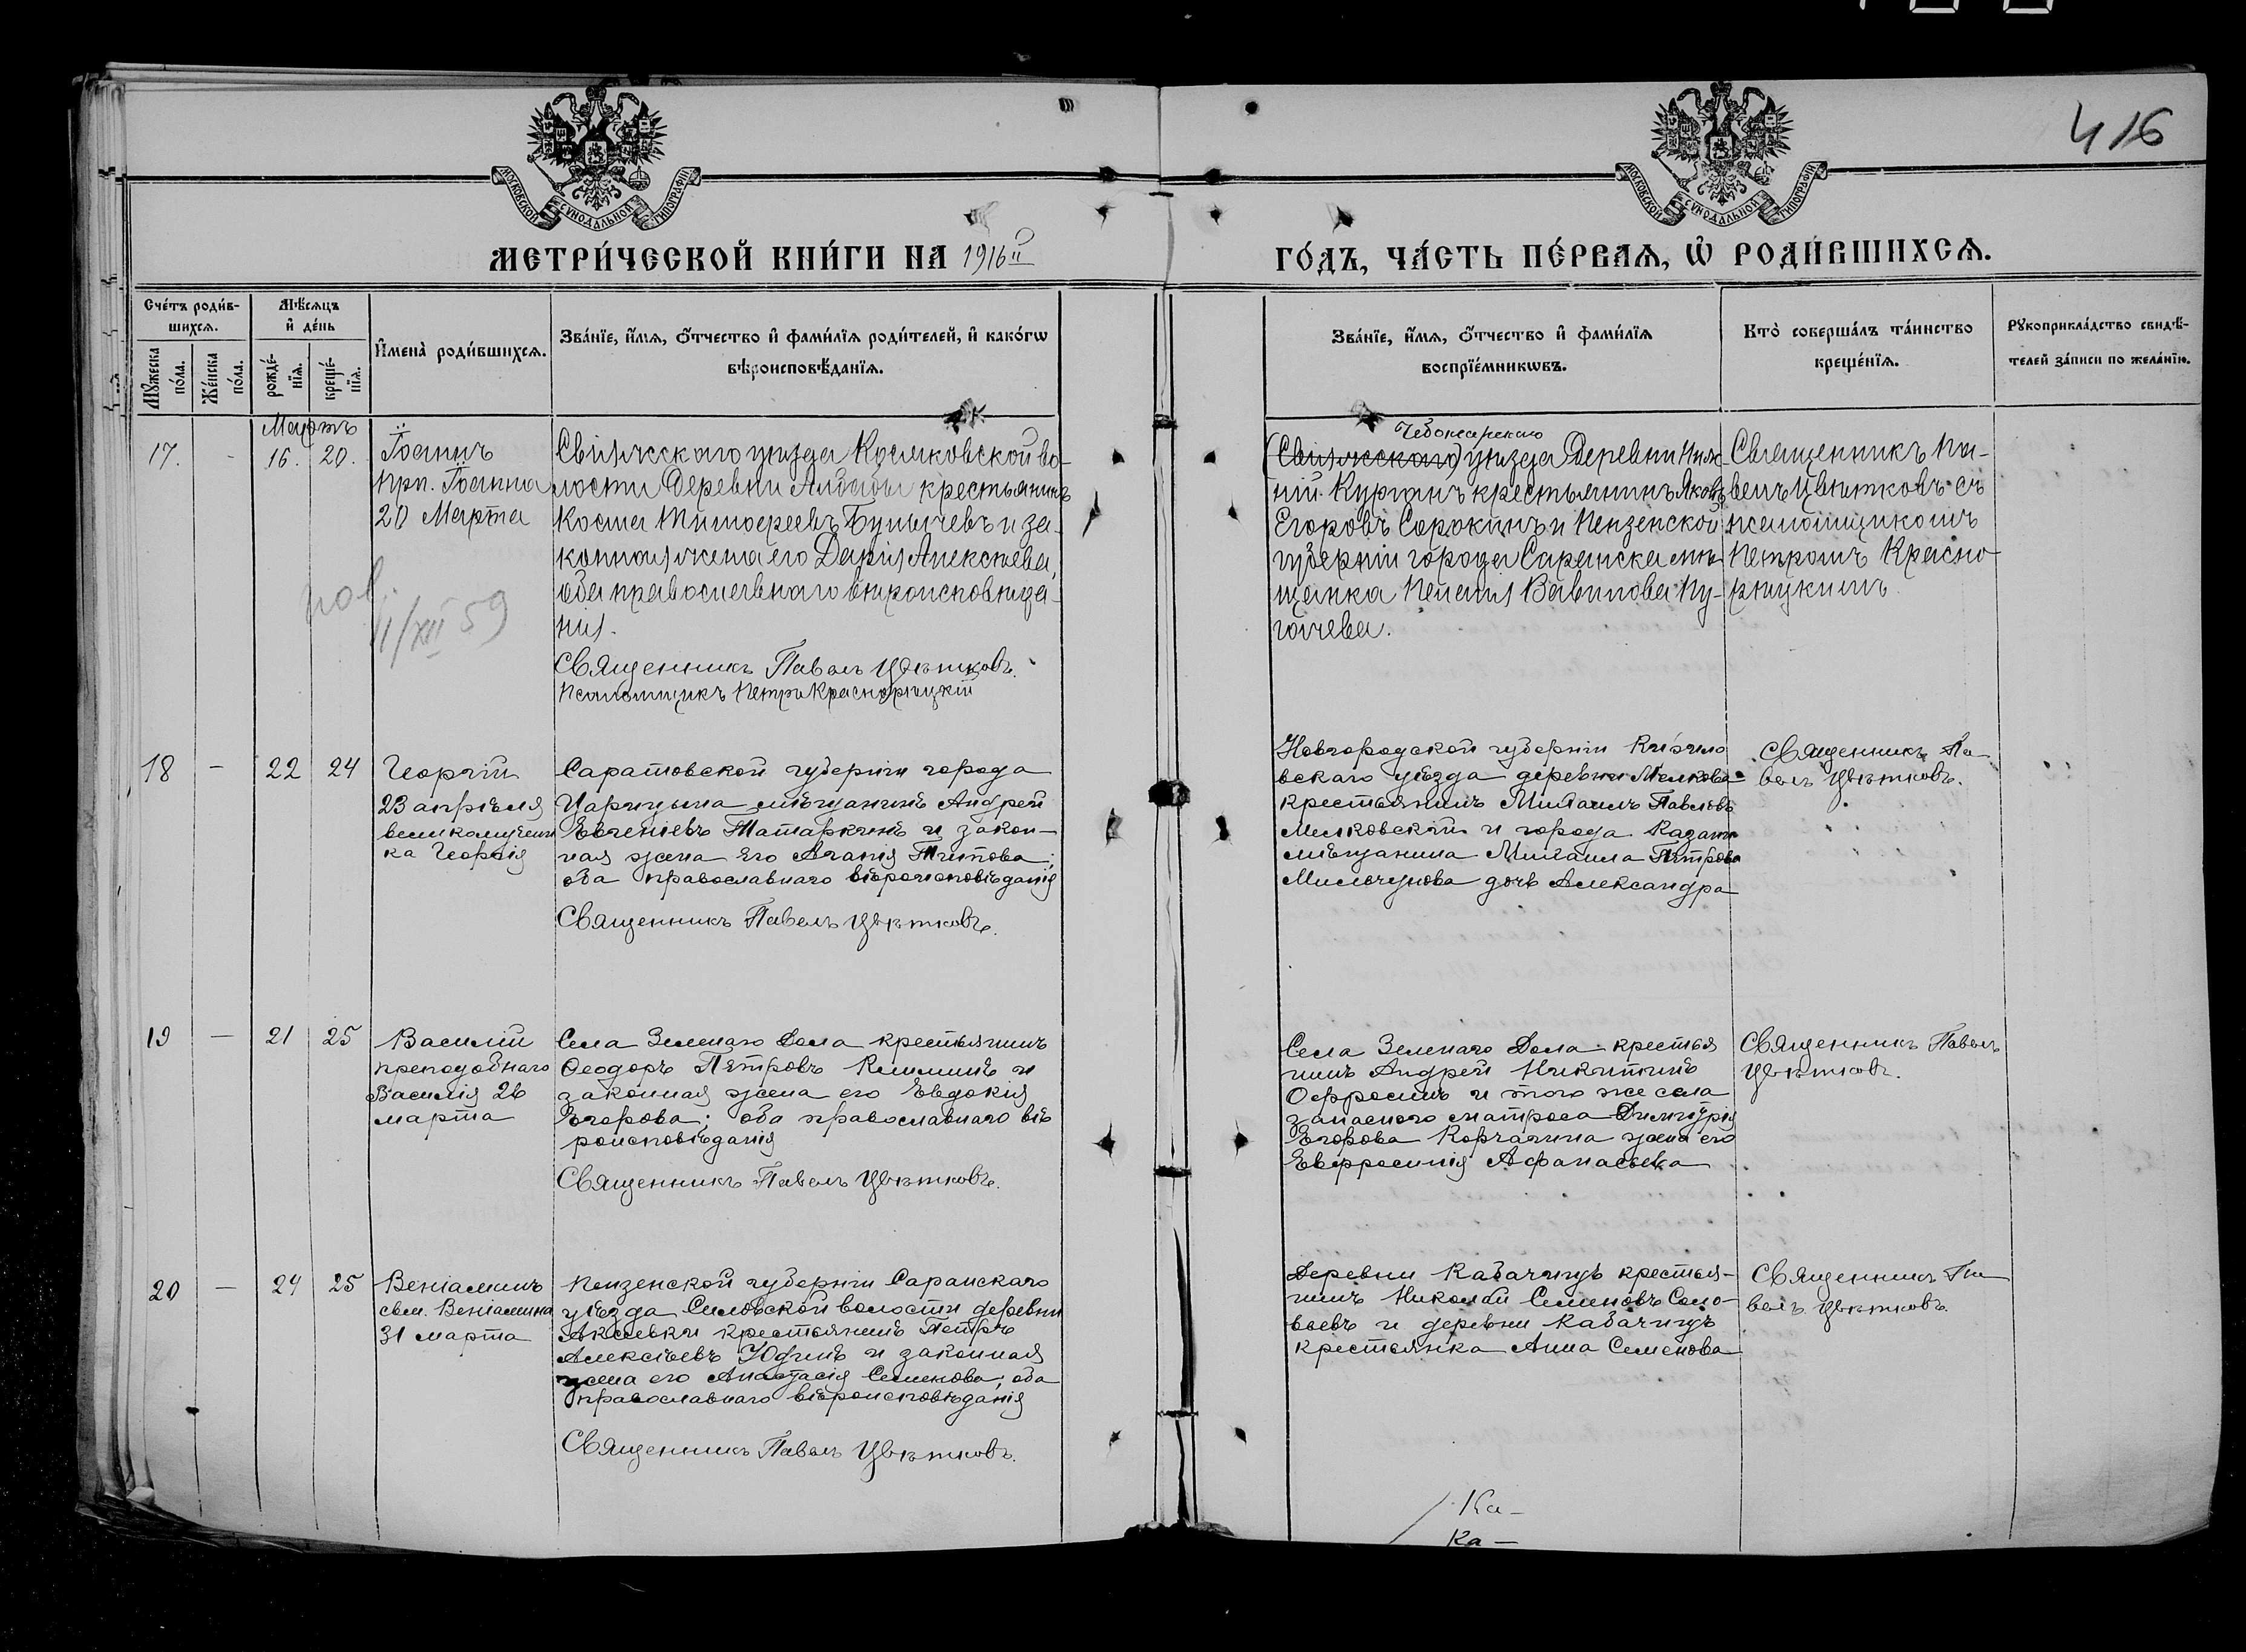 416
МОСКОВСКОЙ СѴНОДАЛЬНОЙ ТИПОГРАФІИ
МОСКОВСКОЙ СѴНОДАЛЬНОЙ ТИПОГРАФІИ
МЕТРИ́ЧЕСКОЙ КНИ́ГИ НА 1916й
ГО́ДЪ, ЧА́СТЬ ПЕ́РВАѦ, Ѡ҆ РОДИ́ВШИХСѦ.
Сче́тъ роди́в-
шихсѧ.
Мꙋ́жеска по́ла.
Же́нска по́ла.
Мѣ́сѧцъ
и҆ де́нь
рожде́-
нїѧ.
креще́-
нїѧ.
И҆мена̀ роди́вшихсѧ.
Зва́нїе, и҆́мѧ, ѻ҆́тчество и҆ фами́лїѧ роди́телей, и҆ како́гѡ
вѣроисповѣ́данїѧ.
Зва́нїе, и҆́мѧ, ѻ҆́тчество и҆ фами́лїѧ
воспрїе́мникѡвъ.
Кто̀ соверша́лъ та́инство
креще́нїѧ.
Рꙋкоприкла́дство свидѣ́-
телей за́писи по жела́нїю.
Мартъ
17. - 16. 20.
Іоаннъ
прп. Іоанна
20 Марта
Свіяжскаго уѣзда Косяковской во-
лости деревни крестьянинъ
Косма Тимоѳеевъ и за-
конная жена его Дарія Алексѣева,
оба православнаго вѣроисповѣда-
нія.
Священникъ Павелъ Цвѣтковъ.
Псаломщикъ Петръ Краснорѣцкій
11/XII 59
Чебоксарскаго
(Свіяжскаго) уѣзда деревни Ниж-
ній Курганъ крестьянинъ Яковъ
Егоровъ Сорокинъ и Пензенской
губерніи города Саранска мѣ-
щанка Пелагія Вавилова Пу-
гачева.
Священникъ Па-
велъ Цвѣтковъ съ
псаломщикомъ
Петромъ Красно-
рѣцкимъ
18 - 22 24
Георгій
23 апрѣля
великомучени
ка Георгія
Саратовской губерніи города
Царицына мѣщанинъ Андрей
Евгеніевъ Татаркинъ и закон-
ная жена его Агапія Титова;
оба православнаго вѣроисповѣданія
Священникъ Павелъ Цвѣтковъ.
Новгородской губерніи Кирило
вскаго уѣзда деревни Малкова
крестьянинъ Михаилъ Павловъ
Милковскій и города Казани
мѣщанина Михаила Петрова
Мильчунова дочь Александра
Священникъ Па-
велъ Цвѣтковъ.
19 - 21 25
Василій
преподобнаго
Василія 26
марта
Села Зеленаго Дола крестьянинъ
Ѳеодоръ Петровъ Климинъ и
законная жена его Евдокія
Егорова; оба православнаго вѣ
роисповѣданія
Священникъ Павелъ Цвѣтковъ.
Села Зеленаго Дола крестья
нинъ Андрей Никитинъ
Офросинъ и того же села
запаснаго матроса Димитрія
Егорова Корчагина жена его
Евфросинія Афанасьева
Священникъ Павелъ
Цвѣтковъ.
20 - 24 25
Веніаминъ
свм. Веніамина
31 марта
Пензенской губерніи Саранскаго
уѣзда волости деревни
Аксеевки крестьянинъ Петръ
Алексѣевъ Юфинъ и законная
жена его Анастасія Семенова; оба
православнаго вѣроисповѣданія
Священникъ Павелъ Цвѣтковъ.
Деревни Кабачищъ крестья-
нинъ Николай Семеновъ Соло-
вьевъ и деревни Кабачищъ
крестьянка Анна Семенова
Священникъ Па-
велъ Цвѣтковъ.
Ка-
Ка-